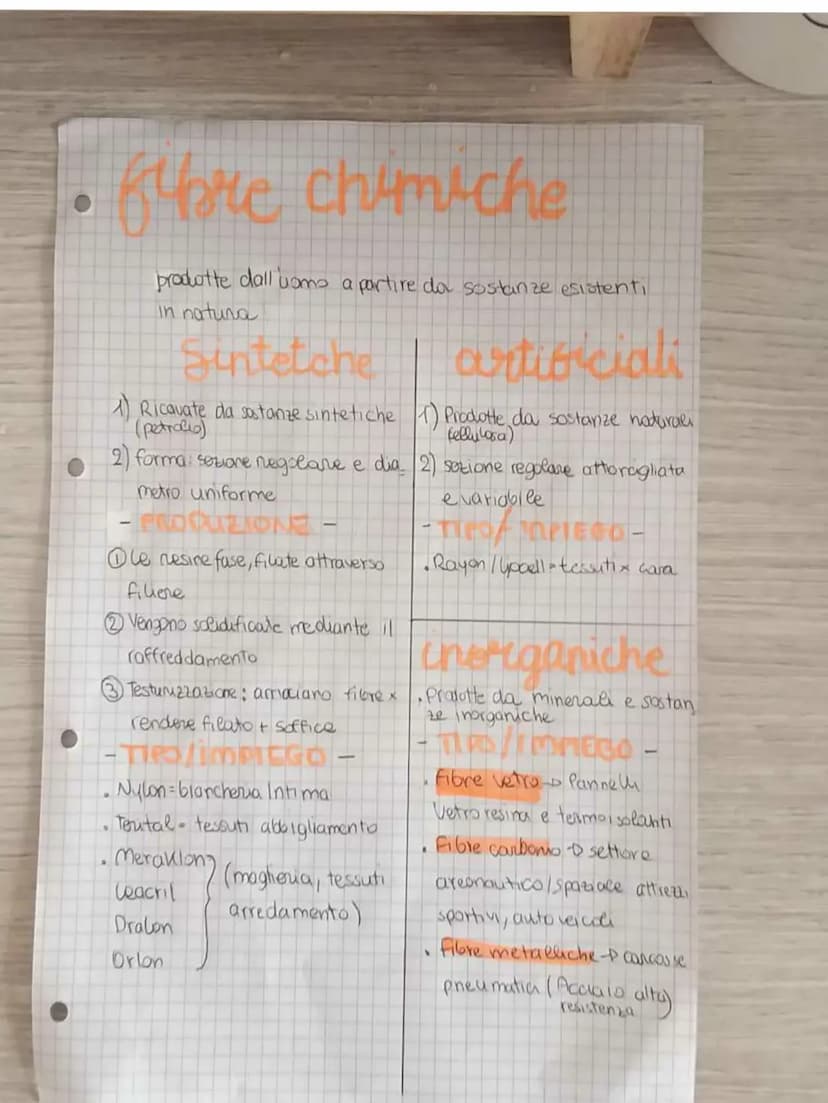 fibre chimiche
prodotte dall'uomo a partire da sostanze esistenti
in natura
Sintetche
1) Ricavate da sostanze sintetiche
(petrolio)
2) forma: sezione regolare e dia_
metro uniforme
- PRODUZIONE -
① le resine fase, filate attraverso
filiere
② Vengono solidificate mediante il
raffreddamento
③ Testurizzazione: arricciano fibre x
rendere filato + soffice
- TIPO/IMPIEGO -
. Nylon = biancheria Intima
. Terital = tessuti abbigliamento
. Meraklon
Leacril
Dralon
Orlon
(maglieria, tessuti
arredamento)
artificiali
1) Prodotte da sostanze naturali
(cellulosa)
2) sezione regolare attorcigliata
e variabile
- TIPO/IMPIEGO -
. Rayon/lyocell = tessuti x casa
inorganiche
. Prodotte da minerali e sostan
ze inorganiche
- TIPO/IMPIEGO -
. Fibre vetro → Pannelli
Vetroresina e termoisolanti
. Fibre carbonio → settore
areonautico/spaziale attrezzi
sportivi, autoveicoli
. Fibre metalliche → carcasse
pneumatici (Acciaio alta)
resistenza